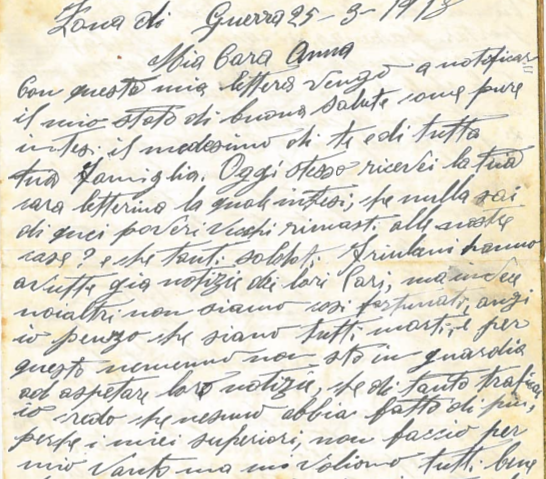 Zona di Guerra 25-3-1918
Mia Cara Anna
Con questa mia lettera vengo a notificar
il mio stato di buona salute come pure
intesi il medesimo di te e di tutta
tua famiglia. Oggi stesso ricevei la tua
cara letterina la quale intesi, che nulla sai
di quei poveri rimasti alle nostre
case? e che tanti soldati Friulani hanno
avutte gia notizie dei lori Cari, ma invece
noialtri non siamo cosi fortunati, anzi
io penzo che siano tutti morti, e per
questo nemenno non sto in guardia
ad aspetare loro notizie, che di tanto
io credo che nesuno abbia fatto di piu,
perche i miei superiori, non faccio per
mio vanto ma mi voliono tutti bene